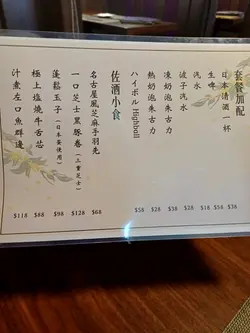 套餐加配
日本清酒一杯 $36
生啤 $54
汽水 $18
波子汽水 $28
凍奶泡朱古力 $28
熱奶泡朱古力 $28
ハイボル Highball $58
佐酒小食
名古屋風芝麻手羽先 $68
一口芝士黑豚卷(三重芝士) $128
蓬鬆玉子(日本蛋使用) $98
極上塩燒牛舌芯 $88
汁煮左口魚鰭邊 $118